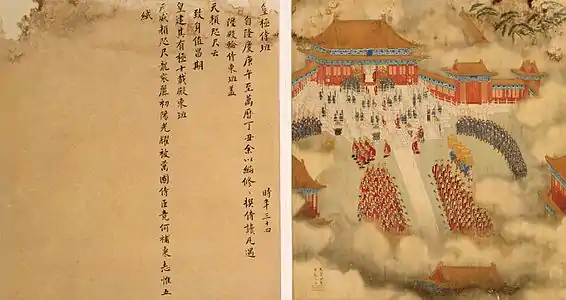 皇極侍班
時年三十四
自隆慶庚午至萬曆丁丑余以編修、撰侍讀凡遇
陞殿輪侍東班蓋
天顏咫尺云
致身值昌期
皇建其有極十載殿東班
天威顏咫尺龍袞麗初陽光耀被萬國侍臣竟何補素志惟五
緎